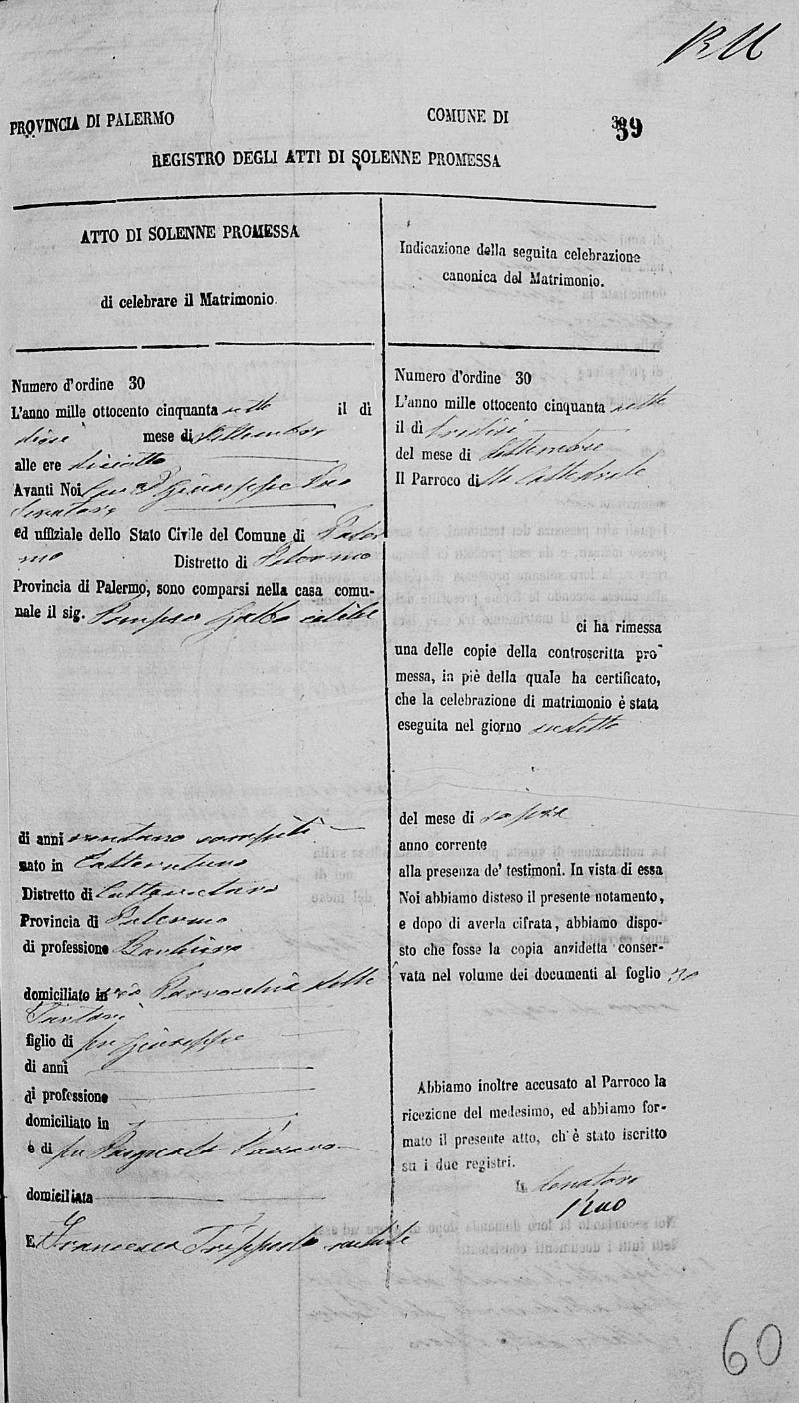 PROVINCIA DI PALERMO
COMUNE DI
39
REGISTRO DEGLI ATTI DI SOLENNE PROMESSA
ATTO DI SOLENNE PROMESSA
di celebrare il Matrimonio.
Numero d'ordine 30
L'anno mille ottocento cinquanta sette il dì
dieci mese di Settembre
alle ore diciotto
Avanti Noi Giuseppe
Senatore
ed uffiziale dello Stato Civile del Comune di Paler
mo Distretto di Palermo
Provincia di Palermo, sono comparsi nella casa comu-
nale il sig. Pompeo Gatto celibe
di anni compiti
nato in
Distretto di
Provincia di Palermo
di professione Barbiere
domiciliato in Parrocchia delli
Tartari
figlio di fu Giuseppe
di anni
di professione
domiciliato in
e di fu Pasquala
domiciliata
E Francesca nubile
Indicazione della seguita celebrazione
canonica del Matrimonio.
Numero d'ordine 30
L'anno mille ottocento cinquanta sette
il dì tredici
del mese di Settembre
Il Parroco di Cattedrale
ci ha rimessa
una delle copie della controscritta pro-
messa, in piè della quale ha certificato,
che la celebrazione di matrimonio è stata
eseguita nel giorno sudetto
del mese di sopra
anno corrente
alla presenza de' testimoni. In vista di essa
Noi abbiamo disteso il presente notamento,
e dopo di averla cifrata, abbiamo dispo-
sto che fosse la copia anzidetta conser-
vata nel volume dei documenti al foglio 30
Abbiamo inoltre accusato al Parroco la
ricezione del medesimo, ed abbiamo for-
mato il presente atto, ch'è stato iscritto
su i due registri.
Il Senatore
60